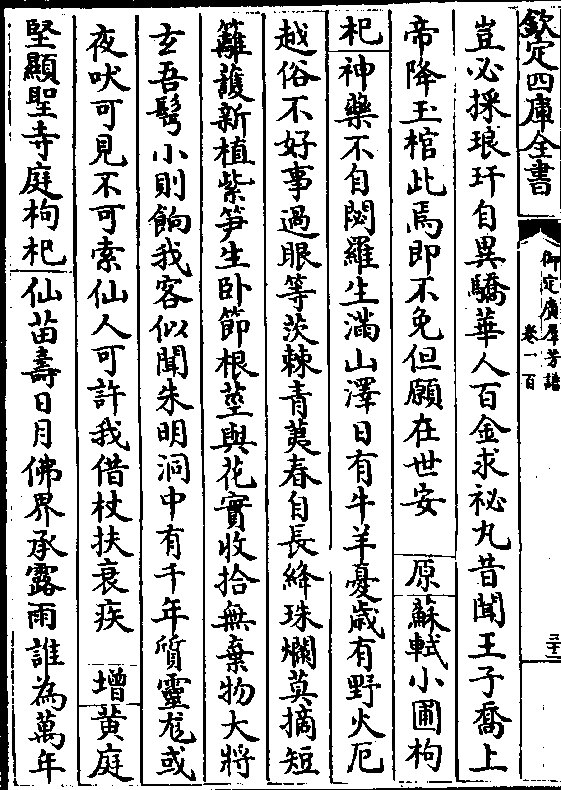 欽定四庫全書
御定廣羣芳譜
卷一百
三十
豈必採琅玕自異驕華人百金求祕丸昔聞王子喬上
帝降玉棺此焉即不免但願在世安　原蘇軾小圃枸
杞神藥不自閟羅生滿山澤日有牛羊憂歲有野火厄
越俗不好事過眼等茨棘青荑春自長絳珠爛莫摘短
籬護新植紫笋生卧節根莖與花實收拾無棄物大將
玄吾鬂小則餉我客似聞朱明洞中有千年質靈尨或
夜吠可見不可索仙人可許我借杖扶衰疾　增黄庭
堅顯聖寺庭枸杞仙苗壽日月佛界承露雨誰為萬年